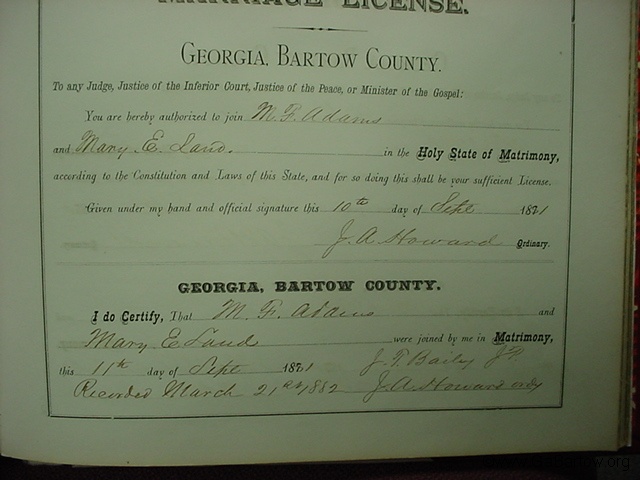 MARRIAGE LICENSE.
GEORGIA, BARTOW COUNTY.
To any Judge, Justice of the Inferior Court, Justice of the Peace, or Minister of the Gospel:
You are hereby authorized to join M. F. Adams
and Mary. E. Land. in the Holy State of Matrimony,
according to the Constitution and Laws of this State, and for so doing this shall be your sufficient License.
Given under my hand and official signature this 10th day of Sept 1881
J. A. Howard Ordinary.
GEORGIA, BARTOW COUNTY.
I do Certify, That M. F. Adams and
Mary E Land were joined by me in Matrimony,
this 11th day of Sept 1881 J. P. Baily JP
Recorded March 21st, 1882 J. A. Howard ordy